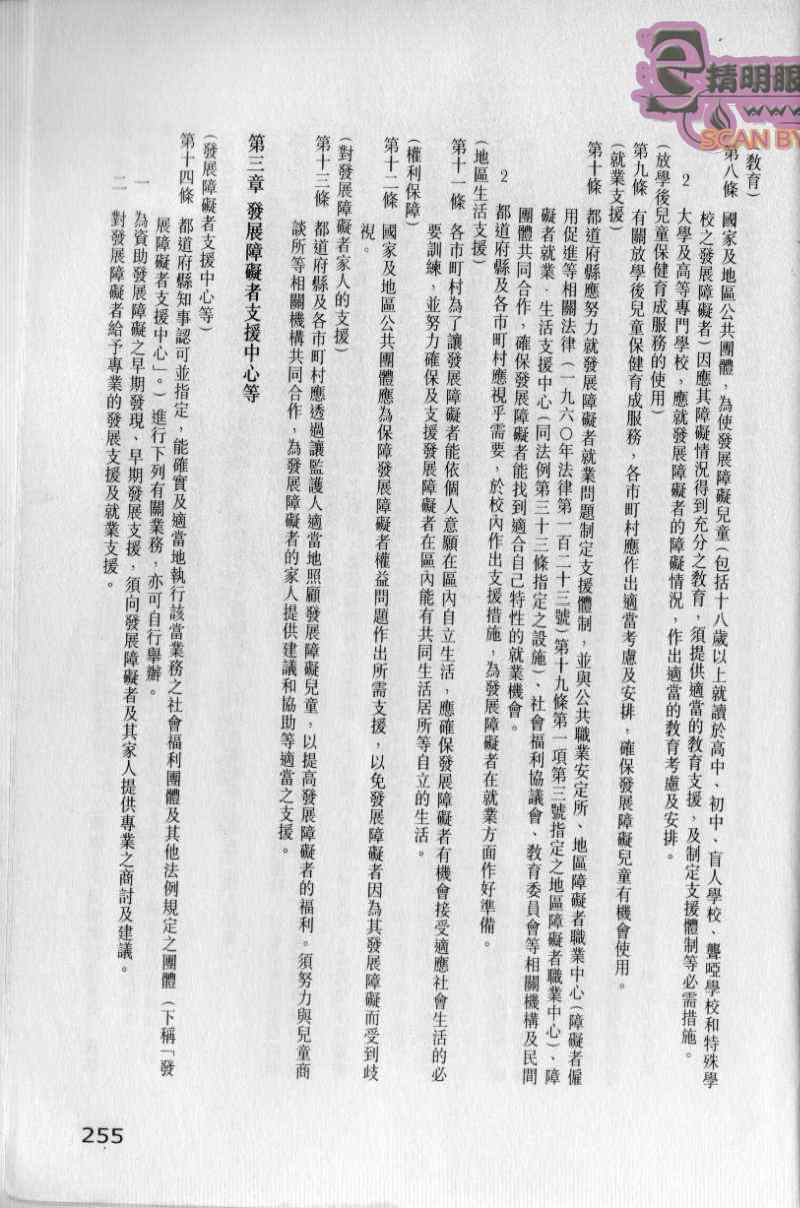 精明眼
www
SCAN BY
(教育)
第八條 國家及地區公共團體,為使發展障礙兒童(包括十八歲以上就讀於高中、初中、盲人學校、聾啞學校和特殊學
校之發展障礙者)因應其障礙情況得到充分之教育,須提供適當的教育支援,及制定支援體制等必需措施。
2 大學及高等專門學校,應就發展障礙者的障礙情況,作出適當的教育考慮及安排。
(放學後兒童保健育成服務的使用)
第九條 有關放學後兒童保健育成服務,各市町村應作出適當考慮及安排,確保發展障礙兒童有機會使用。
(就業支援)
第十條 都道府縣應努力就發展障礙者就業問題制定支援體制,並與公共職業安定所、地區障礙者職業中心(障礙者僱
用促進等相關法律(一九六〇年法律第一百二十三號)第十九條第一項第三號指定之地區障礙者職業中心)、障
礙者就業.生活支援中心(同法例第三十三條指定之設施)、社會福利協議會、教育委員會等相關機構及民間
團體共同合作,確保發展障礙者能找到適合自己特性的就業機會。
2 都道府縣及各市町村應視乎需要,於校內作出支援措施,為發展障礙者在就業方面作好準備。
(地區生活支援)
第十一條 各市町村為了讓發展障礙者能依個人意願在區內自立生活,應確保發展障礙者有機會接受適應社會生活的必
要訓練,並努力確保及支援發展障礙者在區內能有共同生活居所等自立的生活。
(權利保障)
第十二條 國家及地區公共團體應為保障發展障礙者權益問題作出所需支援,以免發展障礙者因為其發展障礙而受到歧
視。
(對發展障礙者家人的支援)
第十三條 都道府縣及各市町村應透過讓監護人適當地照顧發展障礙兒童,以提高發展障礙者的福利。須努力與兒童商
談所等相關機構共同合作,為發展障礙者的家人提供建議和協助等適當之支援。
第三章 發展障礙者支援中心等
(發展障礙者支援中心等)
第十四條 都道府縣知事認可並指定,能確實及適當地執行該當業務之社會福利團體及其他法例規定之團體(下稱「發
展障礙者支援中心」。)進行下列有關業務,亦可自行舉辦。
一 為資助發展障礙之早期發現、早期發展支援,須向發展障礙者及其家人提供專業之商討及建議。
二 對發展障礙者給予專業的發展支援及就業支援。
255